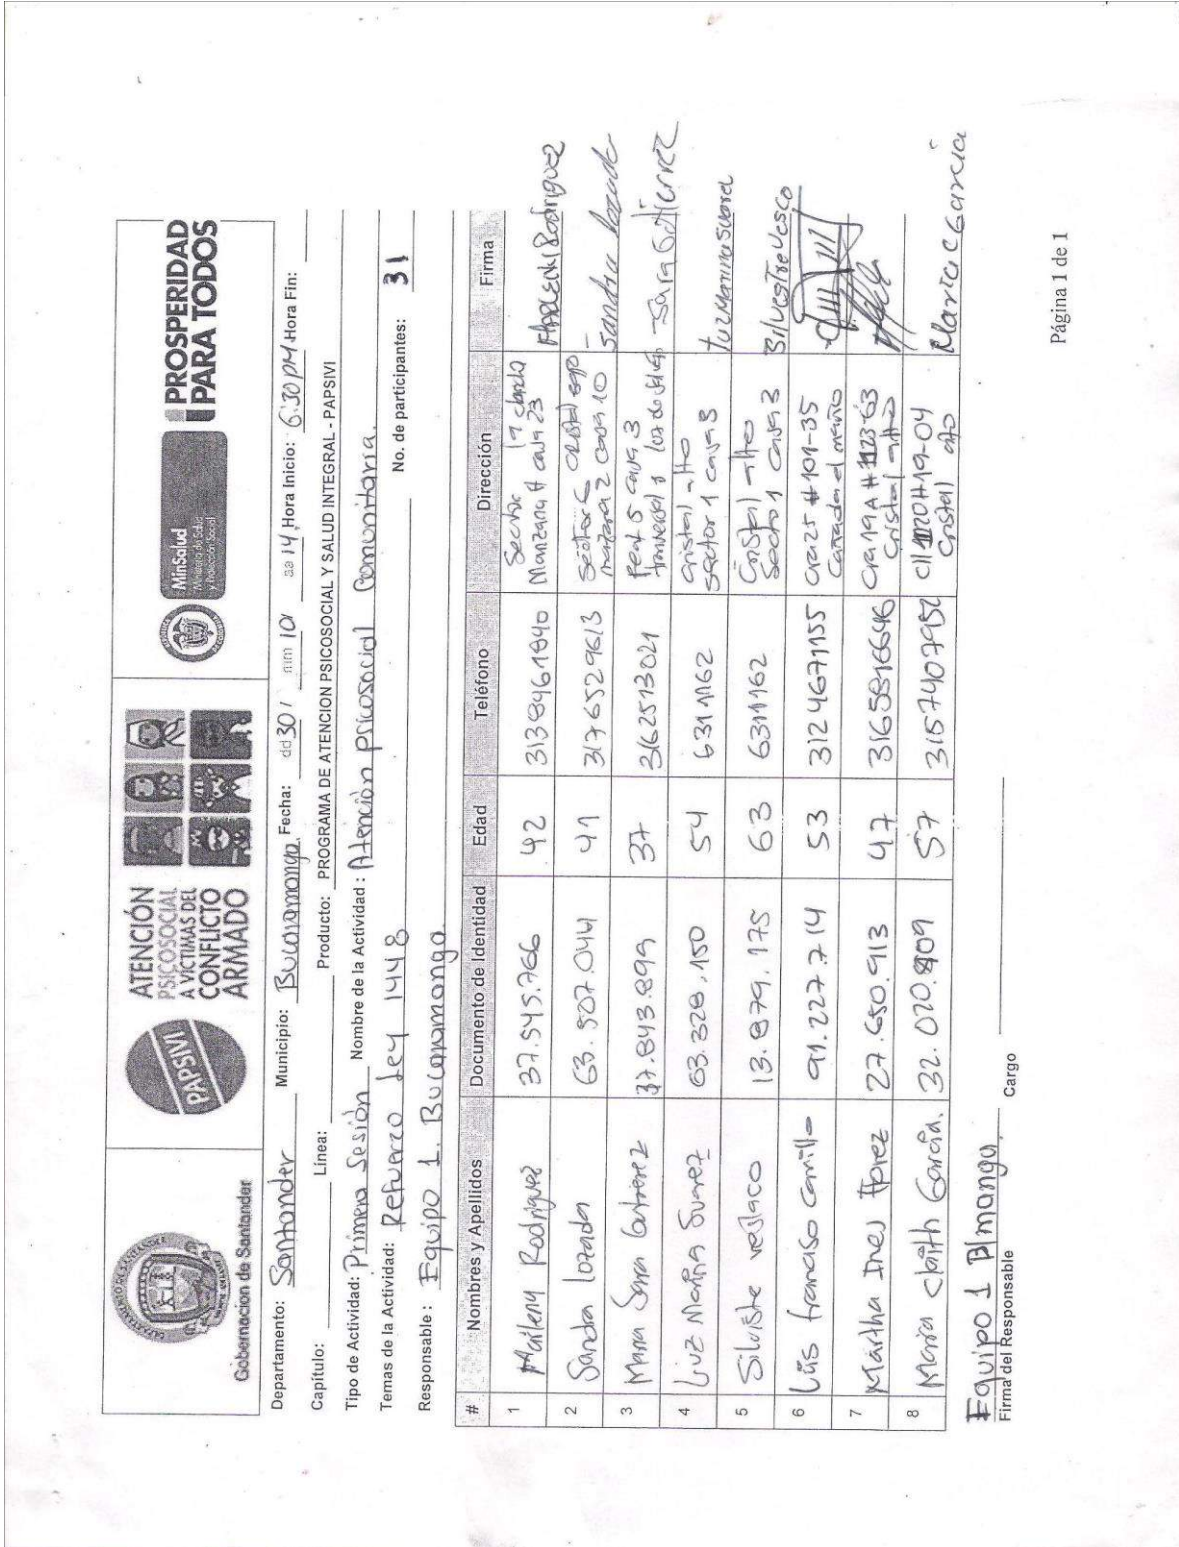 Gobernacion de Santander
PAPSIVI
ATENCIÓN
PSICOSOCIAL
A VÍCTIMAS DEL
CONFLICTO
ARMADO
MinSalud
Ministerio de Salud
y Protección Social
PROSPERIDAD
PARA TODOS
Departamento: Santander Municipio: Bucaramanga Fecha: dd 30 / mm 10 / aa 14 Hora Inicio: 6:30 PM Hora Fin:
Capítulo: Línea: Producto: PROGRAMA DE ATENCION PSICOSOCIAL Y SALUD INTEGRAL - PAPSIVI
Tipo de Actividad: Primera Sesión Nombre de la Actividad: Atención psicosocial Comunitaria.
Temas de la Actividad: Refuerzo Ley 1448
Responsable: Equipo 1. Bucaramanga No. de participantes: 31
# Nombres y Apellidos Documento de Identidad Edad Teléfono Dirección Firma
1 Marleny Rodriguez 37.545.766 42 3138461840 Sector Manzana casa 23 Rodriguez
2 Sandra lozada 63.507.044 41 3176529613 Sector casa 10 Sandra
3 Maria Sara Gutierrez 37.843.899 37 3162513021 casa 3 Sara Gutierrez
4 Luz Marina Suarez 63.328.150 54 6311162 cristal alto sector 1 casa 3 luzmarinasuarez
5 Silvestre velasco 13.879.175 63 6311162 Cristal alto Sector 1 casa 3 SilvestreVesco
6 Luis francisco carrillo 91.227.714 53 3124671155 Cra 25 #101-35
7 Martha Ines florez 27.650.913 47 3165816646 Cra 19A #123-63 Cristal alto
8 Maria claith Garcia. 32.020.809 57 3157407952 Cll 120#19-04 Cristal alto Maria C Garcia
Equipo 1 B/manga.
Firma del Responsable Cargo
Página 1 de 1